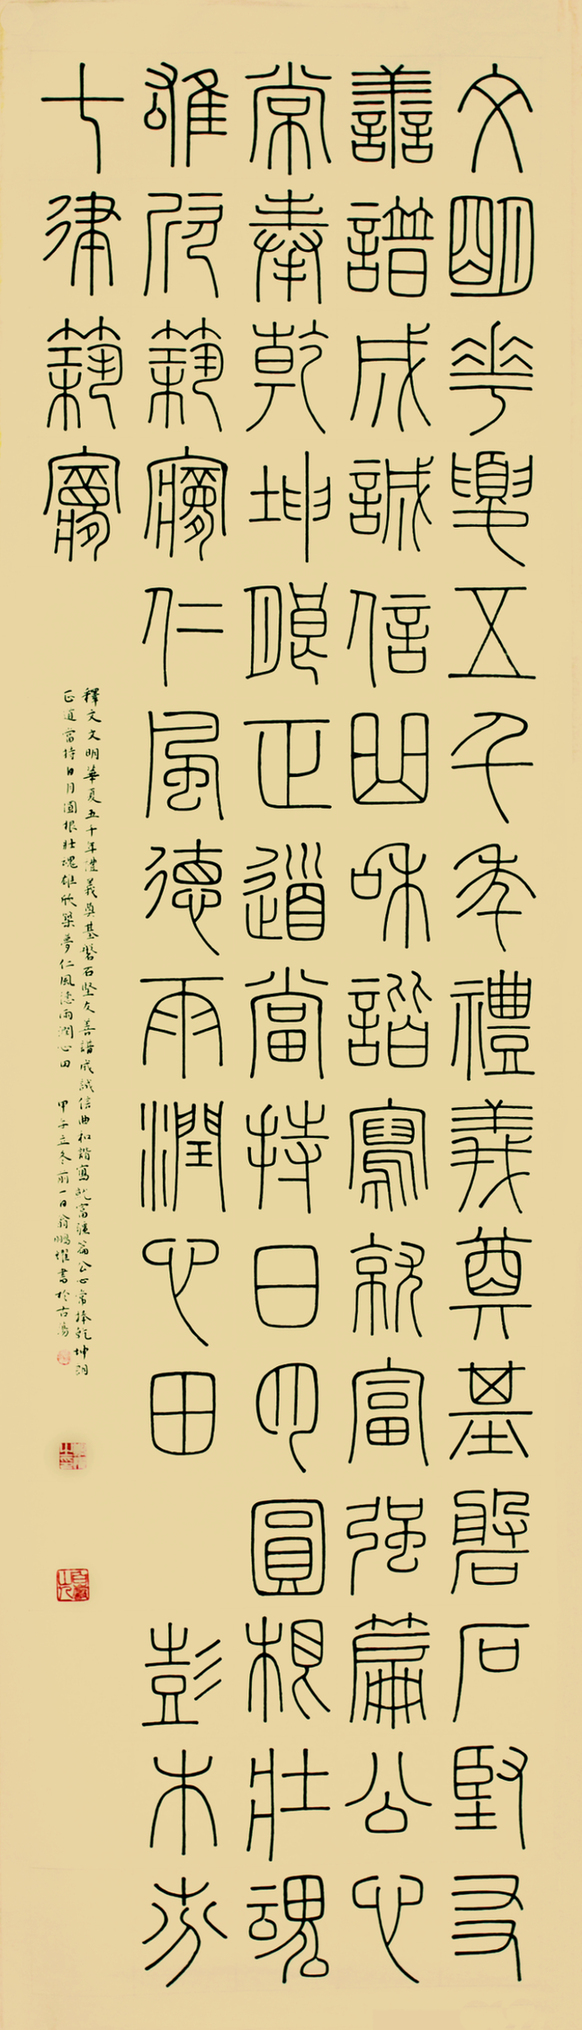 文明華夏五千年禮義奠基磐石堅友
善譜成誠信曲和諧寫就富強篇公心
常奉乾坤朗正道當持日月圓根壯魂
雄欣築夢仁風德雨潤心田 彭木
七律築夢
釋文文明華夏五千年禮義奠基磐石堅友善譜成誠信曲和諧寫就富強篇公心常捧乾坤朗
正道當持日月圓根壯魂雄欣築夢仁風德雨潤心田 甲午立冬前一日 書於古